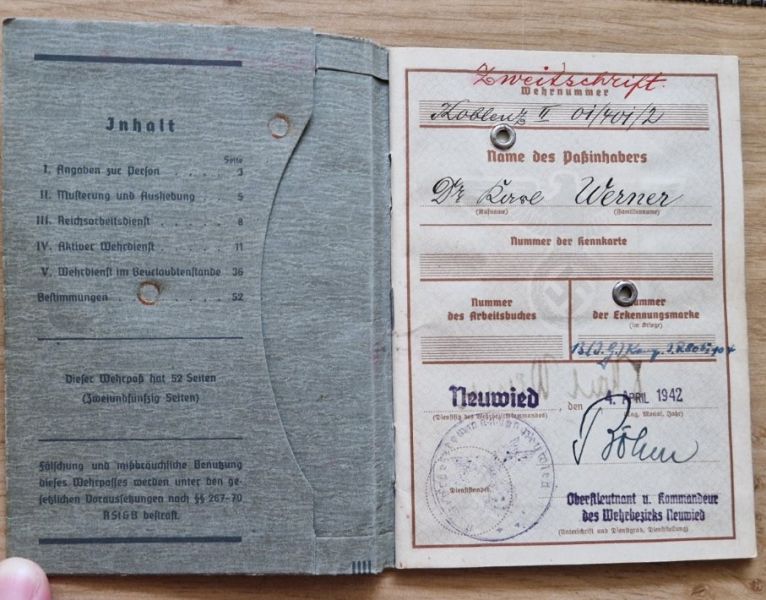 Inhalt
Seite
I. Angaben zur Person . . . . 3
II. Musterung und Aushebung . . 5
III. Reichsarbeitsdienst . . . . 8
IV. Aktiver Wehrdienst . . . . 11
V. Wehrdienst im Beurlaubtenstande 36
Bestimmungen . . . . 52
Dieser Wehrpaß hat 52 Seiten
(Zweiundfünfzig Seiten)
Fälschung und mißbräuchliche Benutzung
dieses Wehrpasses werden unter den ge-
setzlichen Voraussetzungen nach §§ 267-70
RStGB bestraft.
Zweitschrift.
Wehrnummer
Koblenz II 01/401/2
Name des Paßinhabers
Dr Karl Werner
(Rufname) (Familienname)
Nummer der Kennkarte
Nummer
des Arbeitsbuches
Nummer
der Erkennungsmarke
(im Kriege)
Neuwied, den 4. APRIL 1942
(Dienstsitz des Wehrbezirkkommandos) (Tag, Monat, Jahr)
Böhm
Dienststempel
Oberstleutnant u. Kommandeur
des Wehrbezirks Neuwied
(Unterschrift und Dienstgrad, Dienststellung)